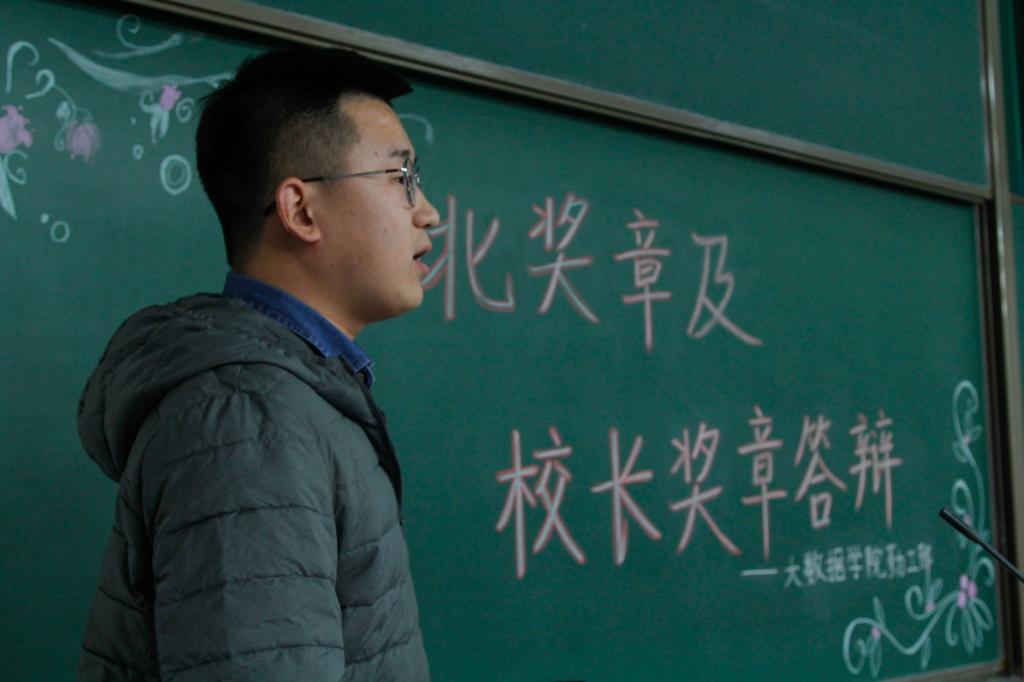 北奖章及
校长奖章答辩
——大数据学院勤工部